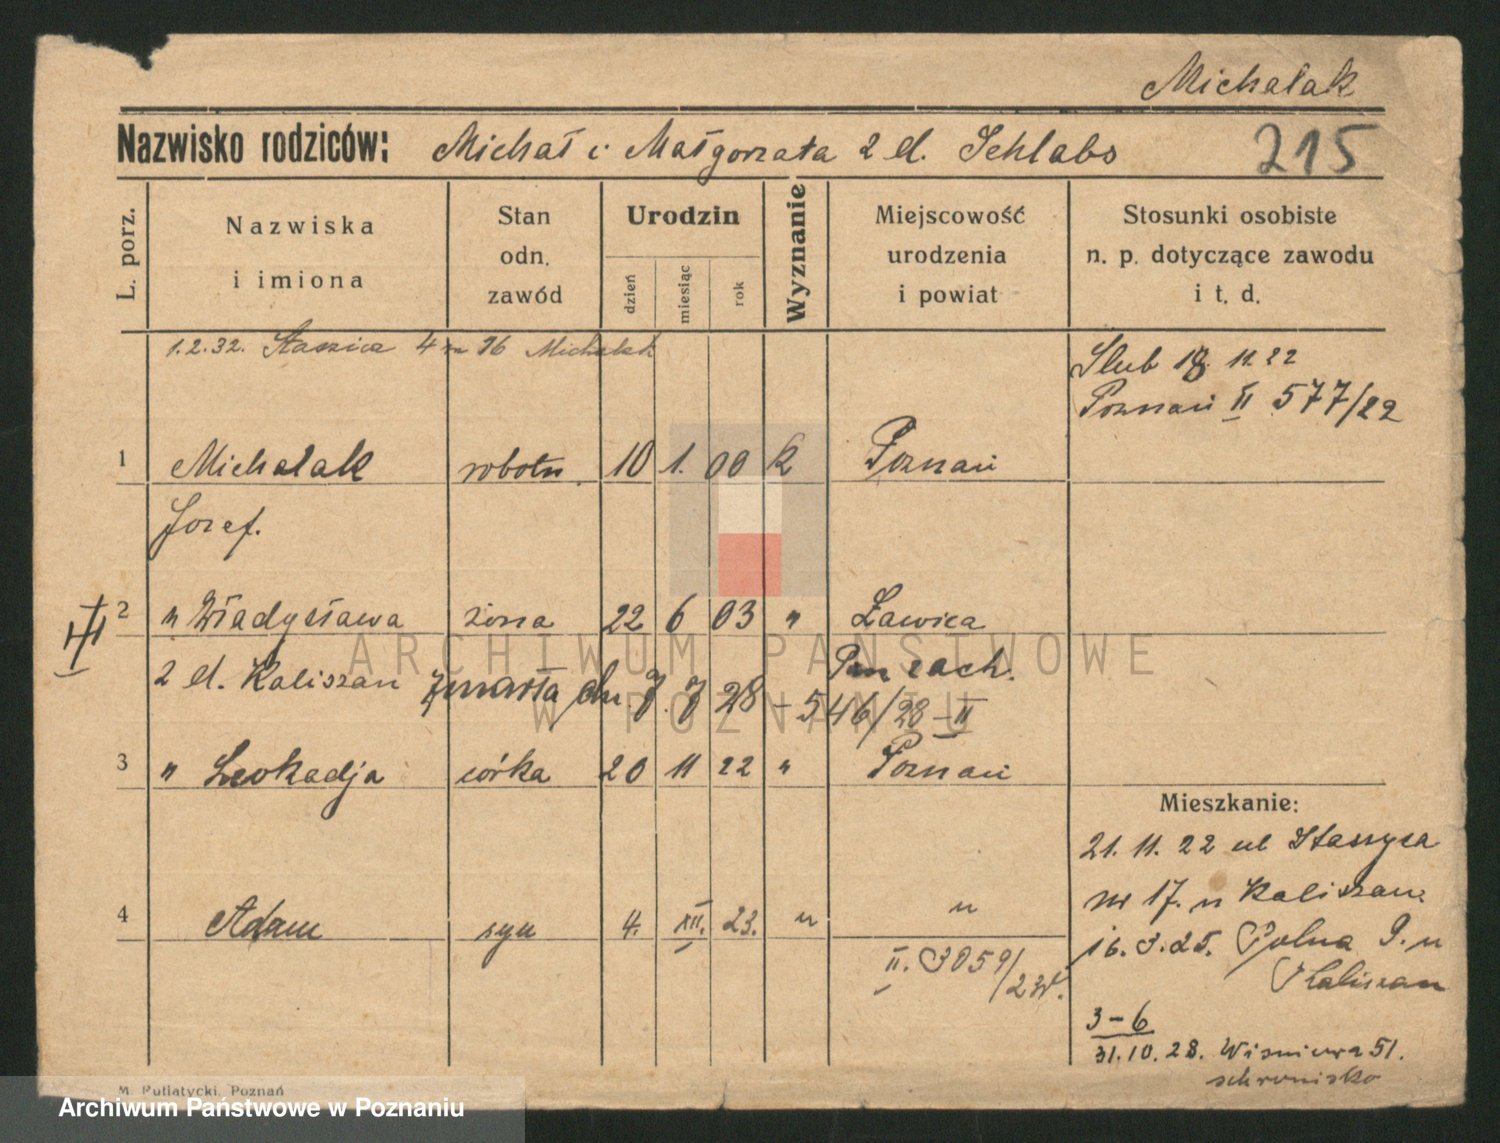 Michalak
Nazwisko rodziców: Michał i Małgorzata 2 d. Schlabs 215
L. porz.
Nazwiska i imiona
Stan odn. zawód
Urodzin
dzień miesiąc rok
Wyznanie
Miejscowość urodzenia i powiat
Stosunki osobiste n. p. dotyczące zawodu i t. d.
1.2.32. Staszica 4 m 16 Michalak
Ślub 18. 11. 22
Poznań II 577/22
1 Michalak robotn. 10 1. 00 k Poznań
Jozef.
2 " Władysława żona 22 6 03 " Ławica
2 d. Kaliszan Pozn zach.
zmarła dn. 7. 7 28 – 546/28 – II
3 " Leokadja córka 20 11 22 " Poznań
Mieszkanie:
21. 11. 22 ul Staszyca
nr 17. u Kaliszan.
4 Adam syn 4. XII. 23. " "
16. 3. 25. Polna 9. u
Kaliszan
II. 3059/23
3–6
31. 10. 28. Wiśniowa 51.
schronisko
M. Putiatycki, Poznań
ARCHIWUM PAŃSTWOWE
W POZNANIU
Archiwum Państwowe w Poznaniu